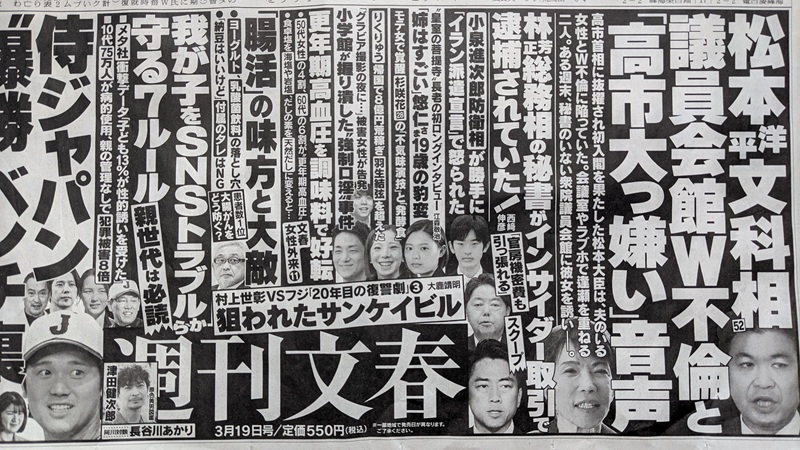 松本洋平文科相 52
議員会館W不倫と
「高市大っ嫌い」音声
高市首相に抜擢され初入閣を果たした松本大臣は、夫のいる
女性とW不倫に陥っていた。会議室やラブホで逢瀬を重ねる
二人。ある週末、秘書のいない衆院議員会館に彼女を誘い―。
林芳正総務相の秘書がインサイダー取引で
逮捕されていた!
西﨑伸彦
「官房機密費も引っ張れる」
スクープ
小泉進次郎防衛相が勝手に
「イラン派遣宣言」で怒られた
皇室の菩提寺・長老の初ロングインタビュー
姉はすごい 悠仁さま19歳の豹変
モテ女で覚醒 杉咲花28の“不気味演技”と発酵食
りくりゅう 帰国で8億円荒稼ぎ 羽生結弦を超えた
グラビア撮影の夜に…被害女性が告発
小学館が握り潰した「強制口淫」事件
更年期高血圧を調味料で好転
50代女性の4割、60代の6割が、更年期高血圧
食卓塩を海塩や岩塩、だしの素を天然だしに変えると…
文春女性外来⑪
「腸活」の味方と大敵
ヨーグルト、乳酸菌飲料の落とし穴
納豆はいいけど「付属のタレはNG」
患者数1位 大腸がんをどう防ぐ?
我が子をSNSトラブルから
守る7ルール
親世代は必読
メタ社衝撃データ「子ども13%が性的誘いを受けた」
10代75万人が病的使用、親の管理なしで犯罪被害8倍
侍ジャパン
“爆勝”ベンチ裏
村上世彰VSフジ「20年目の復讐劇」③ 大鹿靖明
狙われたサンケイビル
週刊文春
3月19日号/定価550円(税込)
※一部地域で発売日が異なります。ご了承ください。
原色美男図鑑
津田健次郎
阿川対談 長谷川あかり